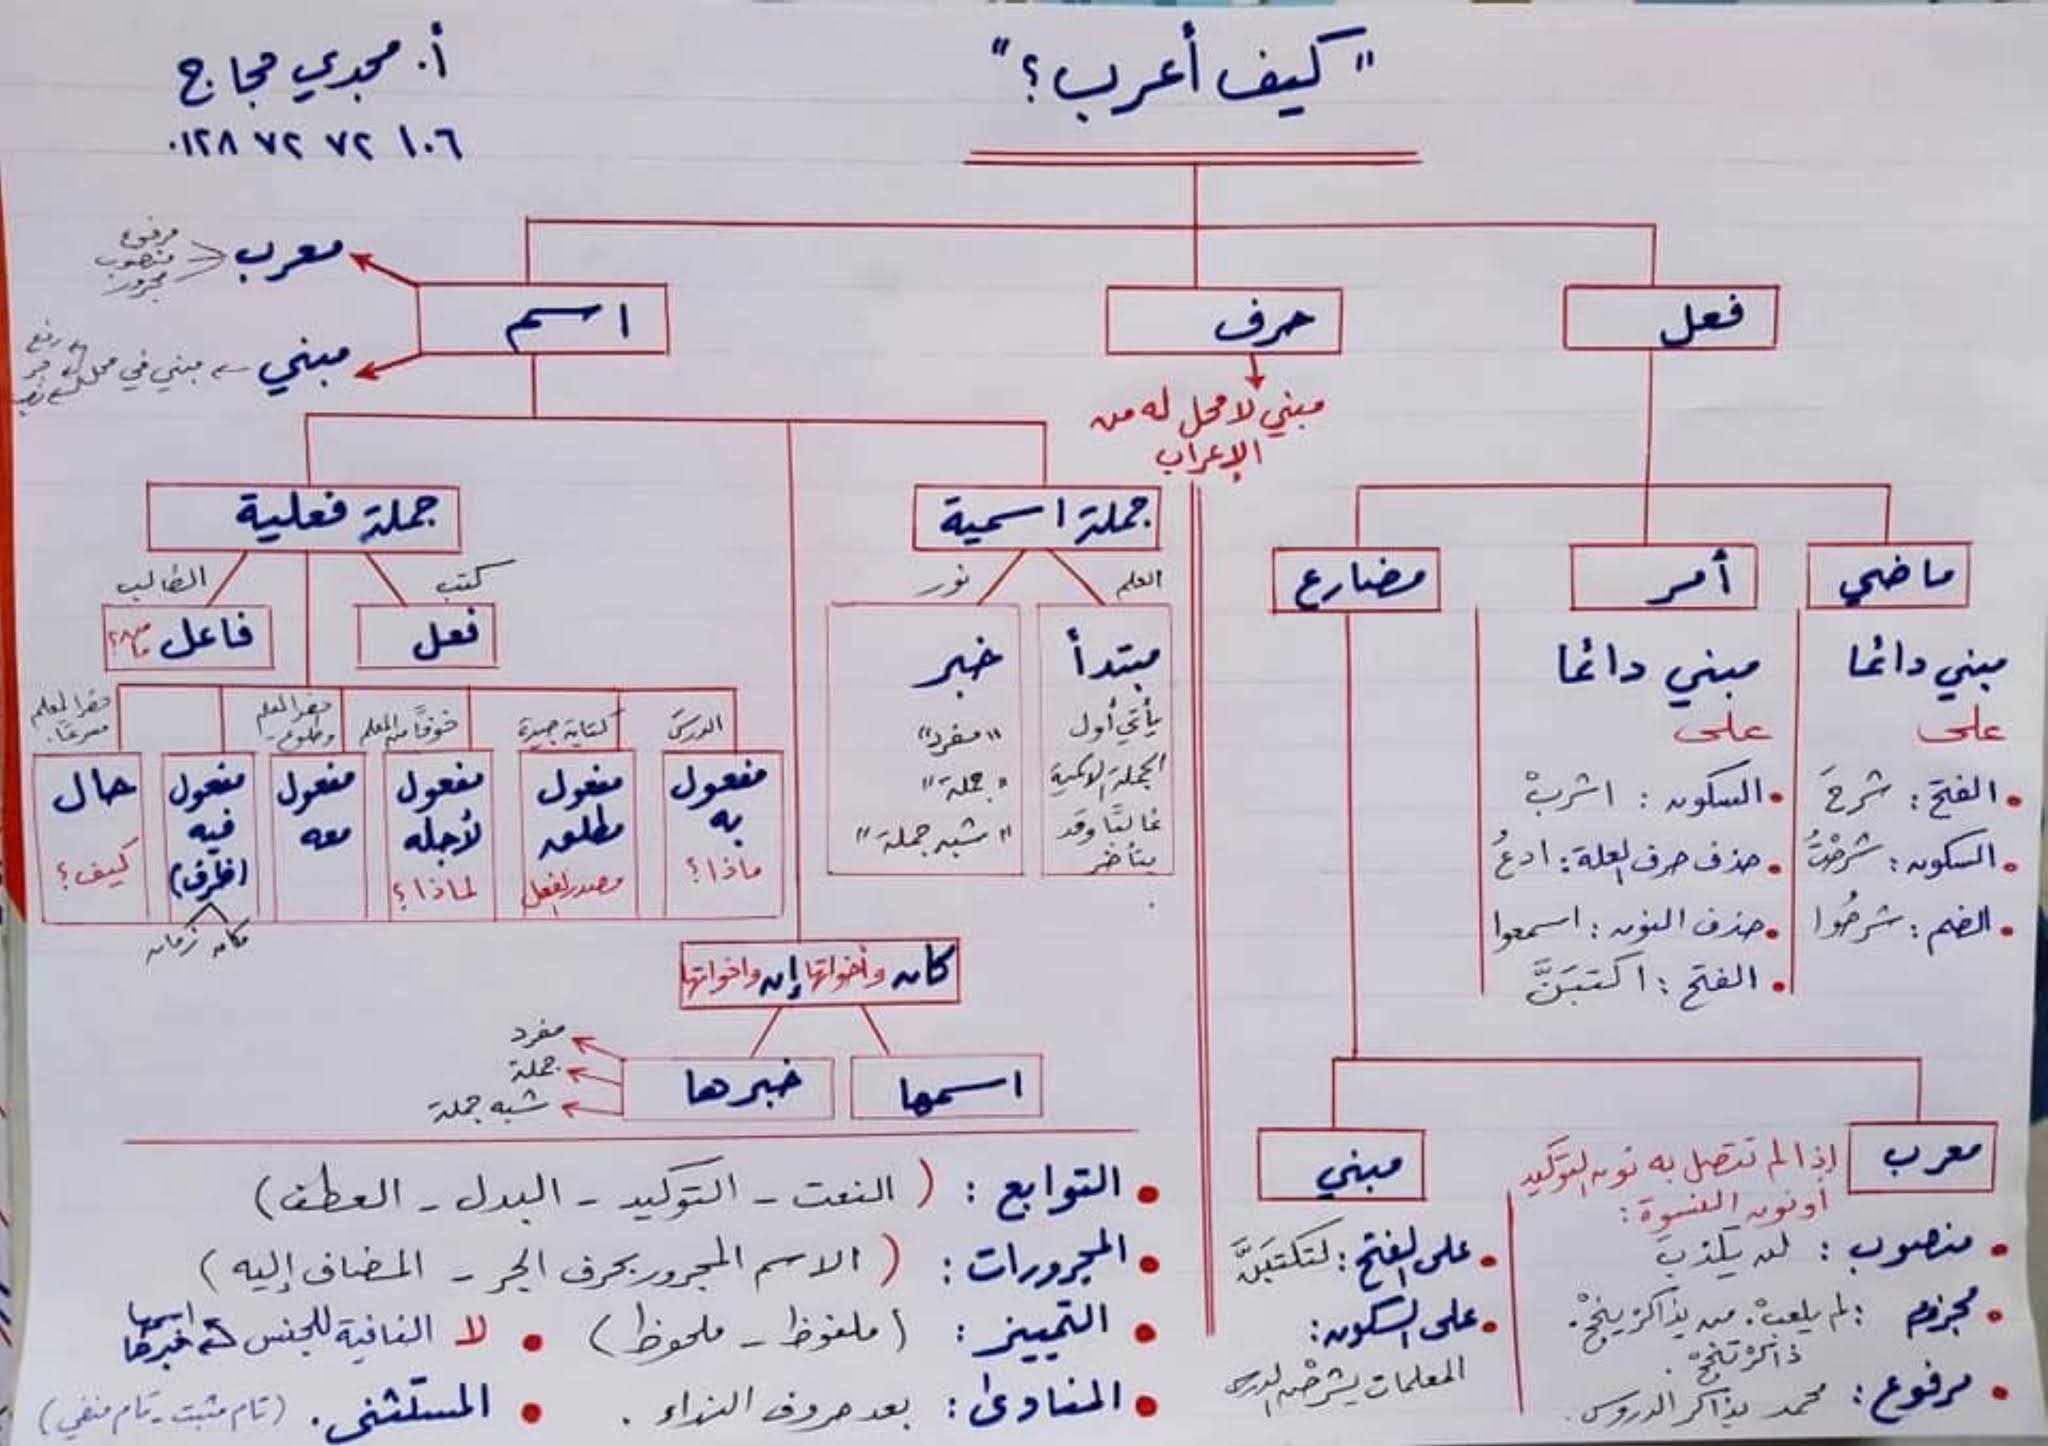 "كيف أعرب؟"
أ. مجدي حجاج
٠١٢٨ ٧٢ ٧٢ ١٠٦
فعل
حرف
مبني لا محل له من
الإعراب
اسم
معرب
مرفوع
منصوب
مجرور
مبني
مبني في محل
رفع
جر
نصب
ماضي
مبني دائما
على
الفتح: شرحَ
السكون: شرحْتُ
الضم: شرحُوا
أمر
مبني دائما
على
السكون: اشربْ
حذف حرف العلة: ادعُ
حذف النون: اسمعوا
الفتح: اكتبَنَّ
مضارع
معرب
إذا لم تتصل به نون التوكيد
أو نون النسوة:
منصوب: لن يكذبَ
مجزوم: لم يلعبْ. من يذاكرْ ينجحْ.
ذاكرْ تنجحْ.
مرفوع: محمد يذاكر الدروس.
مبني
على الفتح: لتكتبَنَّ
على السكون:
المعلمات يشرحْن الدرس
جملة اسمية
العلم
نور
مبتدأ
يأتي أول
الجملة الاسمية
غالبًا وقد
يتأخر
خبر
"مفرد"
"جملة"
"شبه جملة"
جملة فعلية
كتب
الطالب
فعل
فاعل
من؟
ما؟
الدرسَ
مفعول
به
ماذا؟
كتابة جيدة
مفعول
مطلق
مصدر الفعل
خوفًا من المعلم
مفعول
لأجله
لماذا؟
حضر المعلم
وطلوع
مفعول
معه
مفعول
فيه
(ظرف)
مكان زمان
حضر المعلم
مسرعًا.
حال
كيف؟
كان وأخواتها إن وأخواتها
اسمها
خبرها
مفرد
جملة
شبه جملة
التوابع: (النعت - التوكيد - البدل - العطف)
المجرورات: (الاسم المجرور بحرف الجر - المضاف إليه)
التمييز: (ملفوظ - ملحوظ)
لا النافية للجنس
اسمها
خبرها
المنادى: بعد حروف النداء.
المستثنى. (تام مثبت - تام منفي)